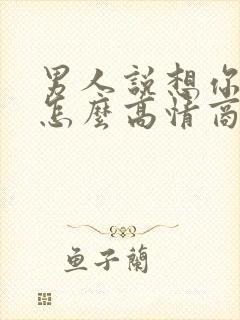 男人說想你
怎麼高情商
魚子蘭